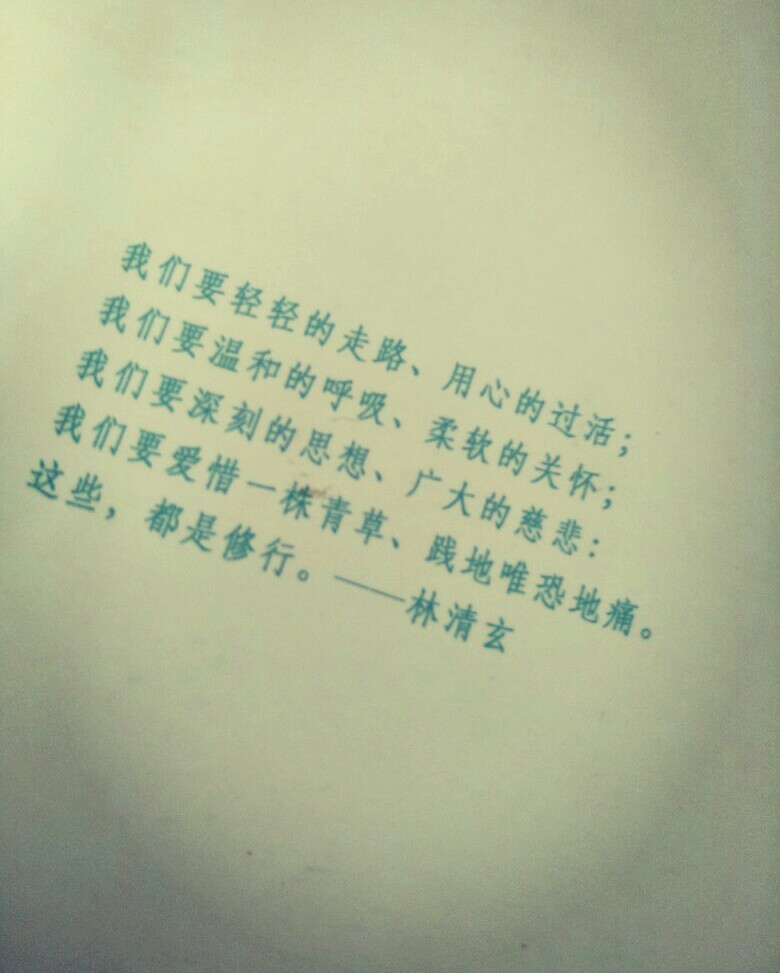 我们要轻轻的走路、用心的过活；
我们要温和的呼吸、柔软的关怀；
我们要深刻的思想、广大的慈悲：
我们要爱惜一株青草、践地唯恐地痛。
这些，都是修行。——林清玄